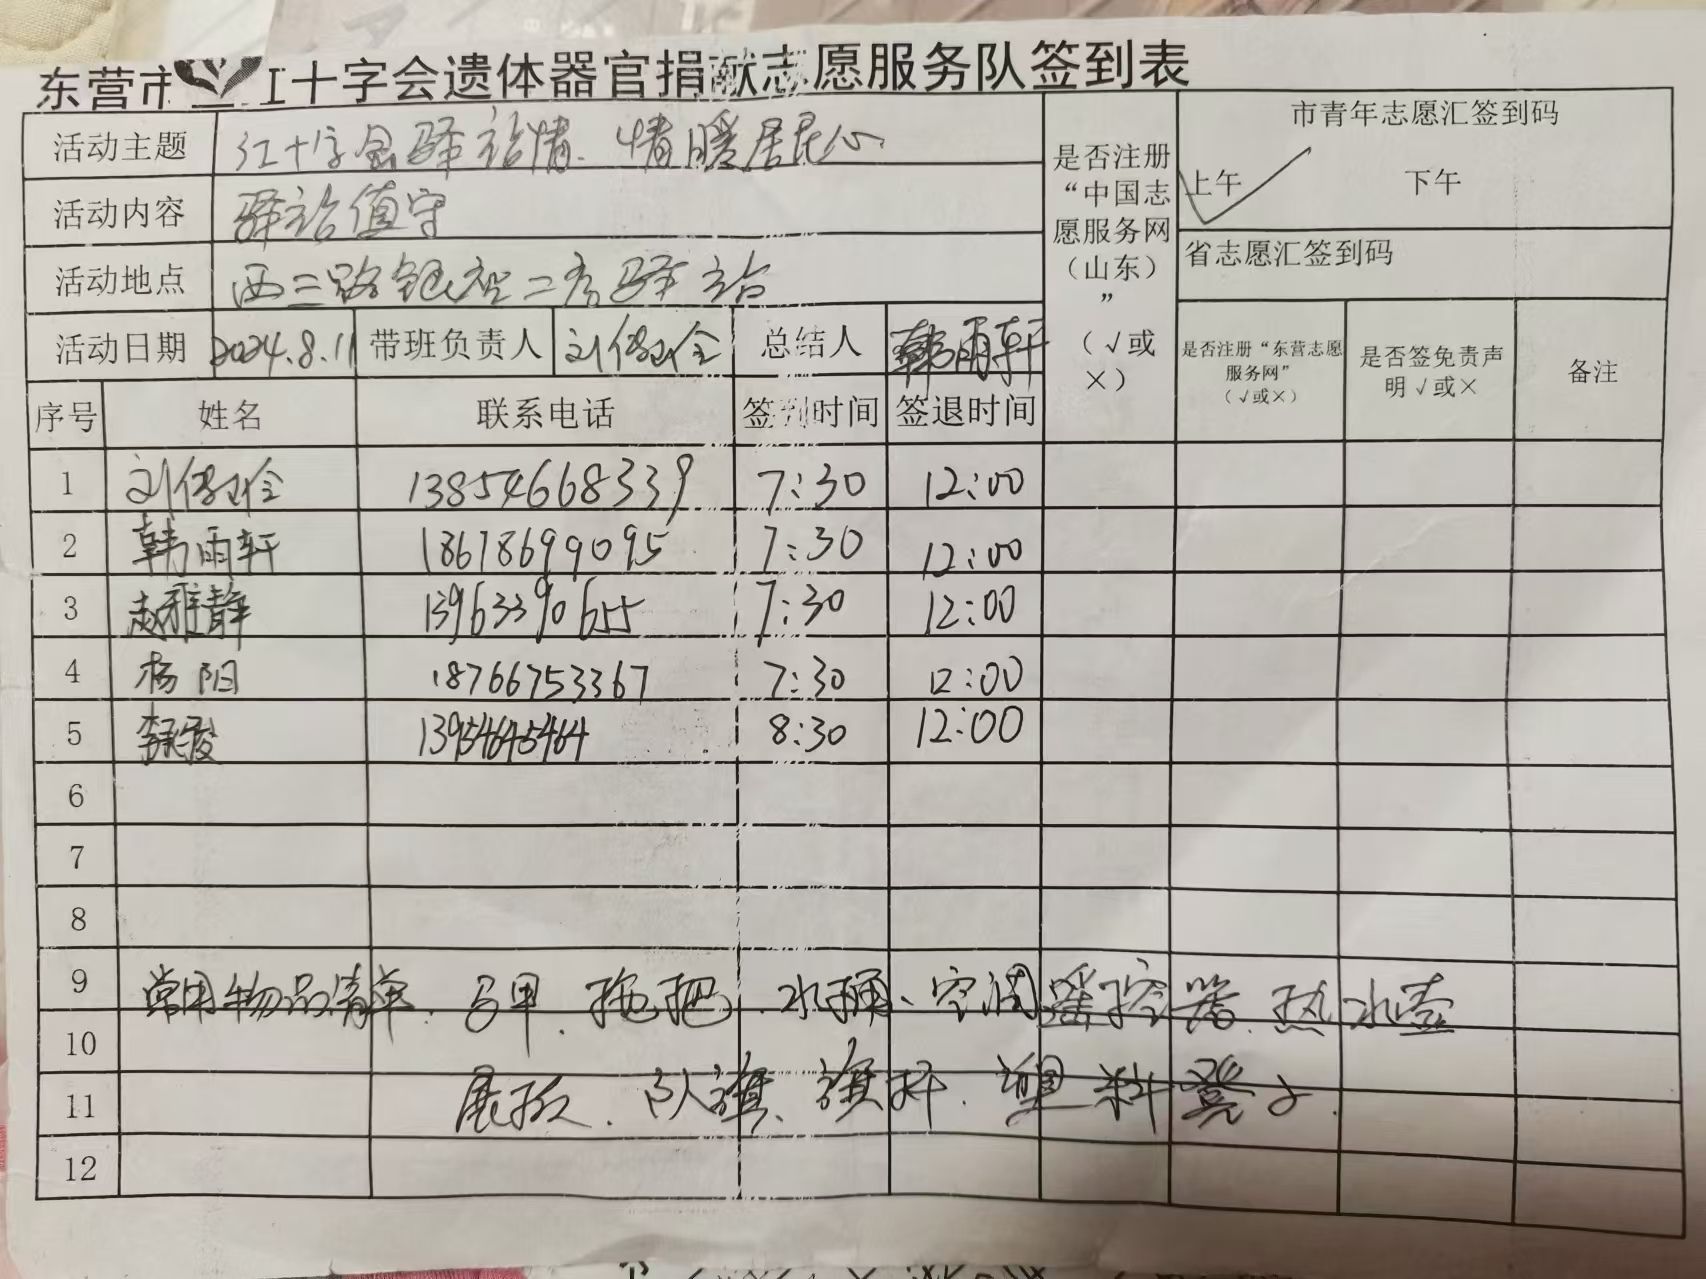 东营市红十字会遗体器官捐献志愿服务队签到表
活动主题 红十字会驿站情、情暖居民心 是否注册“中国志愿服务网（山东）”（√或×） 市青年志愿汇签到码
上午 √ 下午
活动内容 驿站值守
省志愿汇签到码
活动地点 西三路 二 驿站
活动日期 2024.8.11 带班负责人 刘 总结人 韩雨轩 是否注册“东营志愿服务网”（√或×） 是否签免责声明√或× 备注
序号 姓名 联系电话 签到时间 签退时间
1 刘 13854668339 7:30 12:00
2 韩雨轩 18678699095 7:30 12:00
3 赵雅静 13963390655 7:30 12:00
4 杨阳 18766753367 7:30 12:00
5 李 13954645464 8:30 12:00
6
7
8
9 常用物品清单、马甲、拖把、水桶、空调遥控器、热水壶
10
11 展板、队旗、旗杆、塑料凳子.
12